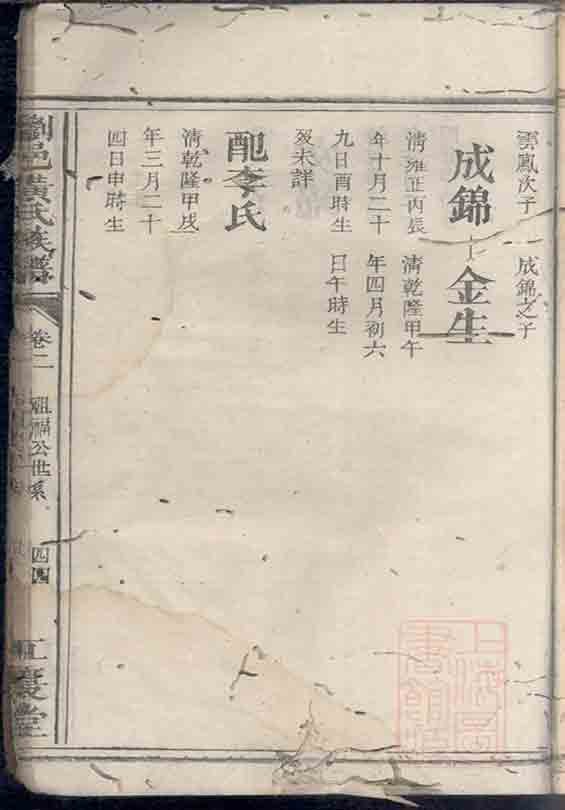 雲鳳次子
成錦之子
成錦
金生
清雍正丙辰
年十月二十
九日酉時生
歿未詳
清乾隆甲午
年四月初六
日午時生
配李氏
清乾隆甲戌
年三月二十
四日申時生
瀏邑黃氏族譜
卷二
祖福公世系
四四
江夏堂
上海圖書館藏